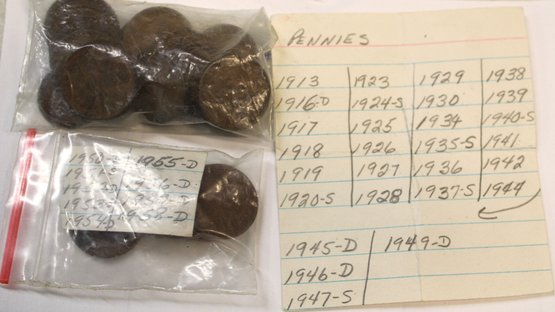 PENNIES
1913 1923 1929 1938
1916-D 1924-S 1930 1939
1917 1925 1934 1940-S
1918 1926 1935-S 1941
1919 1927 1936 1942
1920-S 1928 1937-S 1944
1945-D 1949-D
1946-D
1947-S
1955-D